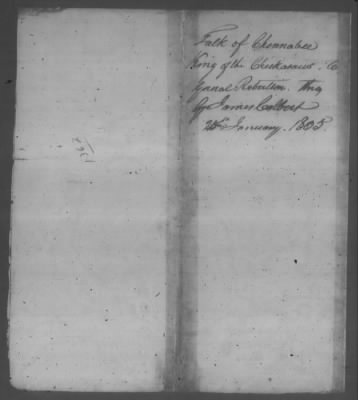 Talk of Chennabee
King of the Chickasaws. to
Genal Robertson. thro
Cap James Colbert
24th January. 1805.